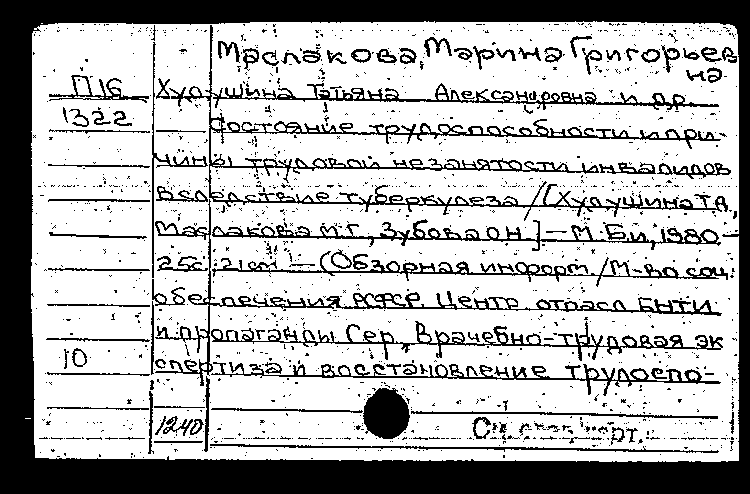 Маслакова, Марина Григорьев
на
П16 Худушина Татьяна Александровна и др.
1322 Состояние трудоспособности и при-
чины трудовой незанятости инвалидов
вследствие туберкулеза /[Худушина Т.А,
Маслакова М.Г., Зубова О.Н.] — М. Б.и, 1980 —
25с, 21 см — (Обзорная информ. /М-во соц.
обеспечения РСФСР. Центр отрасл БНТИ
и пропаганды Сер, Врачебно-трудовая эк
10 спертиза и восстановление трудоспо-
1240 См. след. карт.